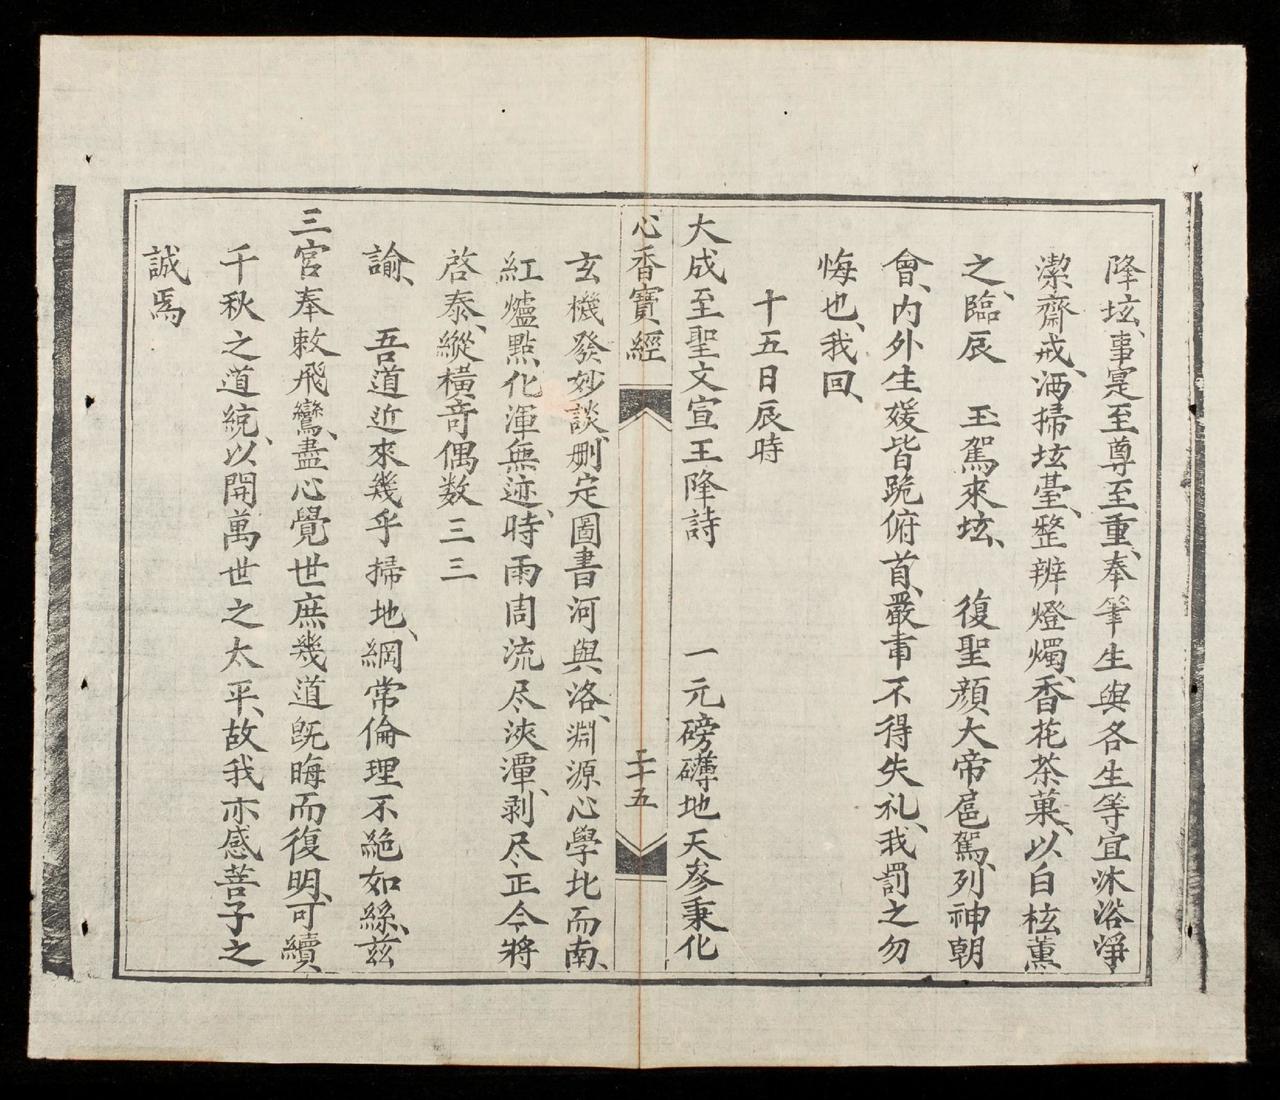 降坛、事寔至尊至重、奉筆生與各生等宜沐浴淨
潔齋戒、洒掃坛臺、整辨燈燭、香花茶菓、以白柱薰
之、臨辰 玉駕來坛、 復聖顏大帝扈駕、列神朝
會、内外生媛皆跪俯首、嚴肅不得失礼、我罰之勿
悔也、我回、
十五日辰時
大成至聖文宣王降詩 一元磅礴地天參秉化
心香寶經 二十五
玄機發妙談、刪定圖書河與洛、淵源心學北而南、
紅爐點化渾無迹、時雨周流尽浹潭、剥尽正今將
啓泰、縱橫奇偶数三三
諭、 吾道近來幾乎掃地、綱常倫理不絕如絲、茲
三宮奉敕飛鸞、盡心覺世、庶幾道既晦而復明、可續
千秋之道統、以開萬世之太平、故我亦感善子之
誠焉